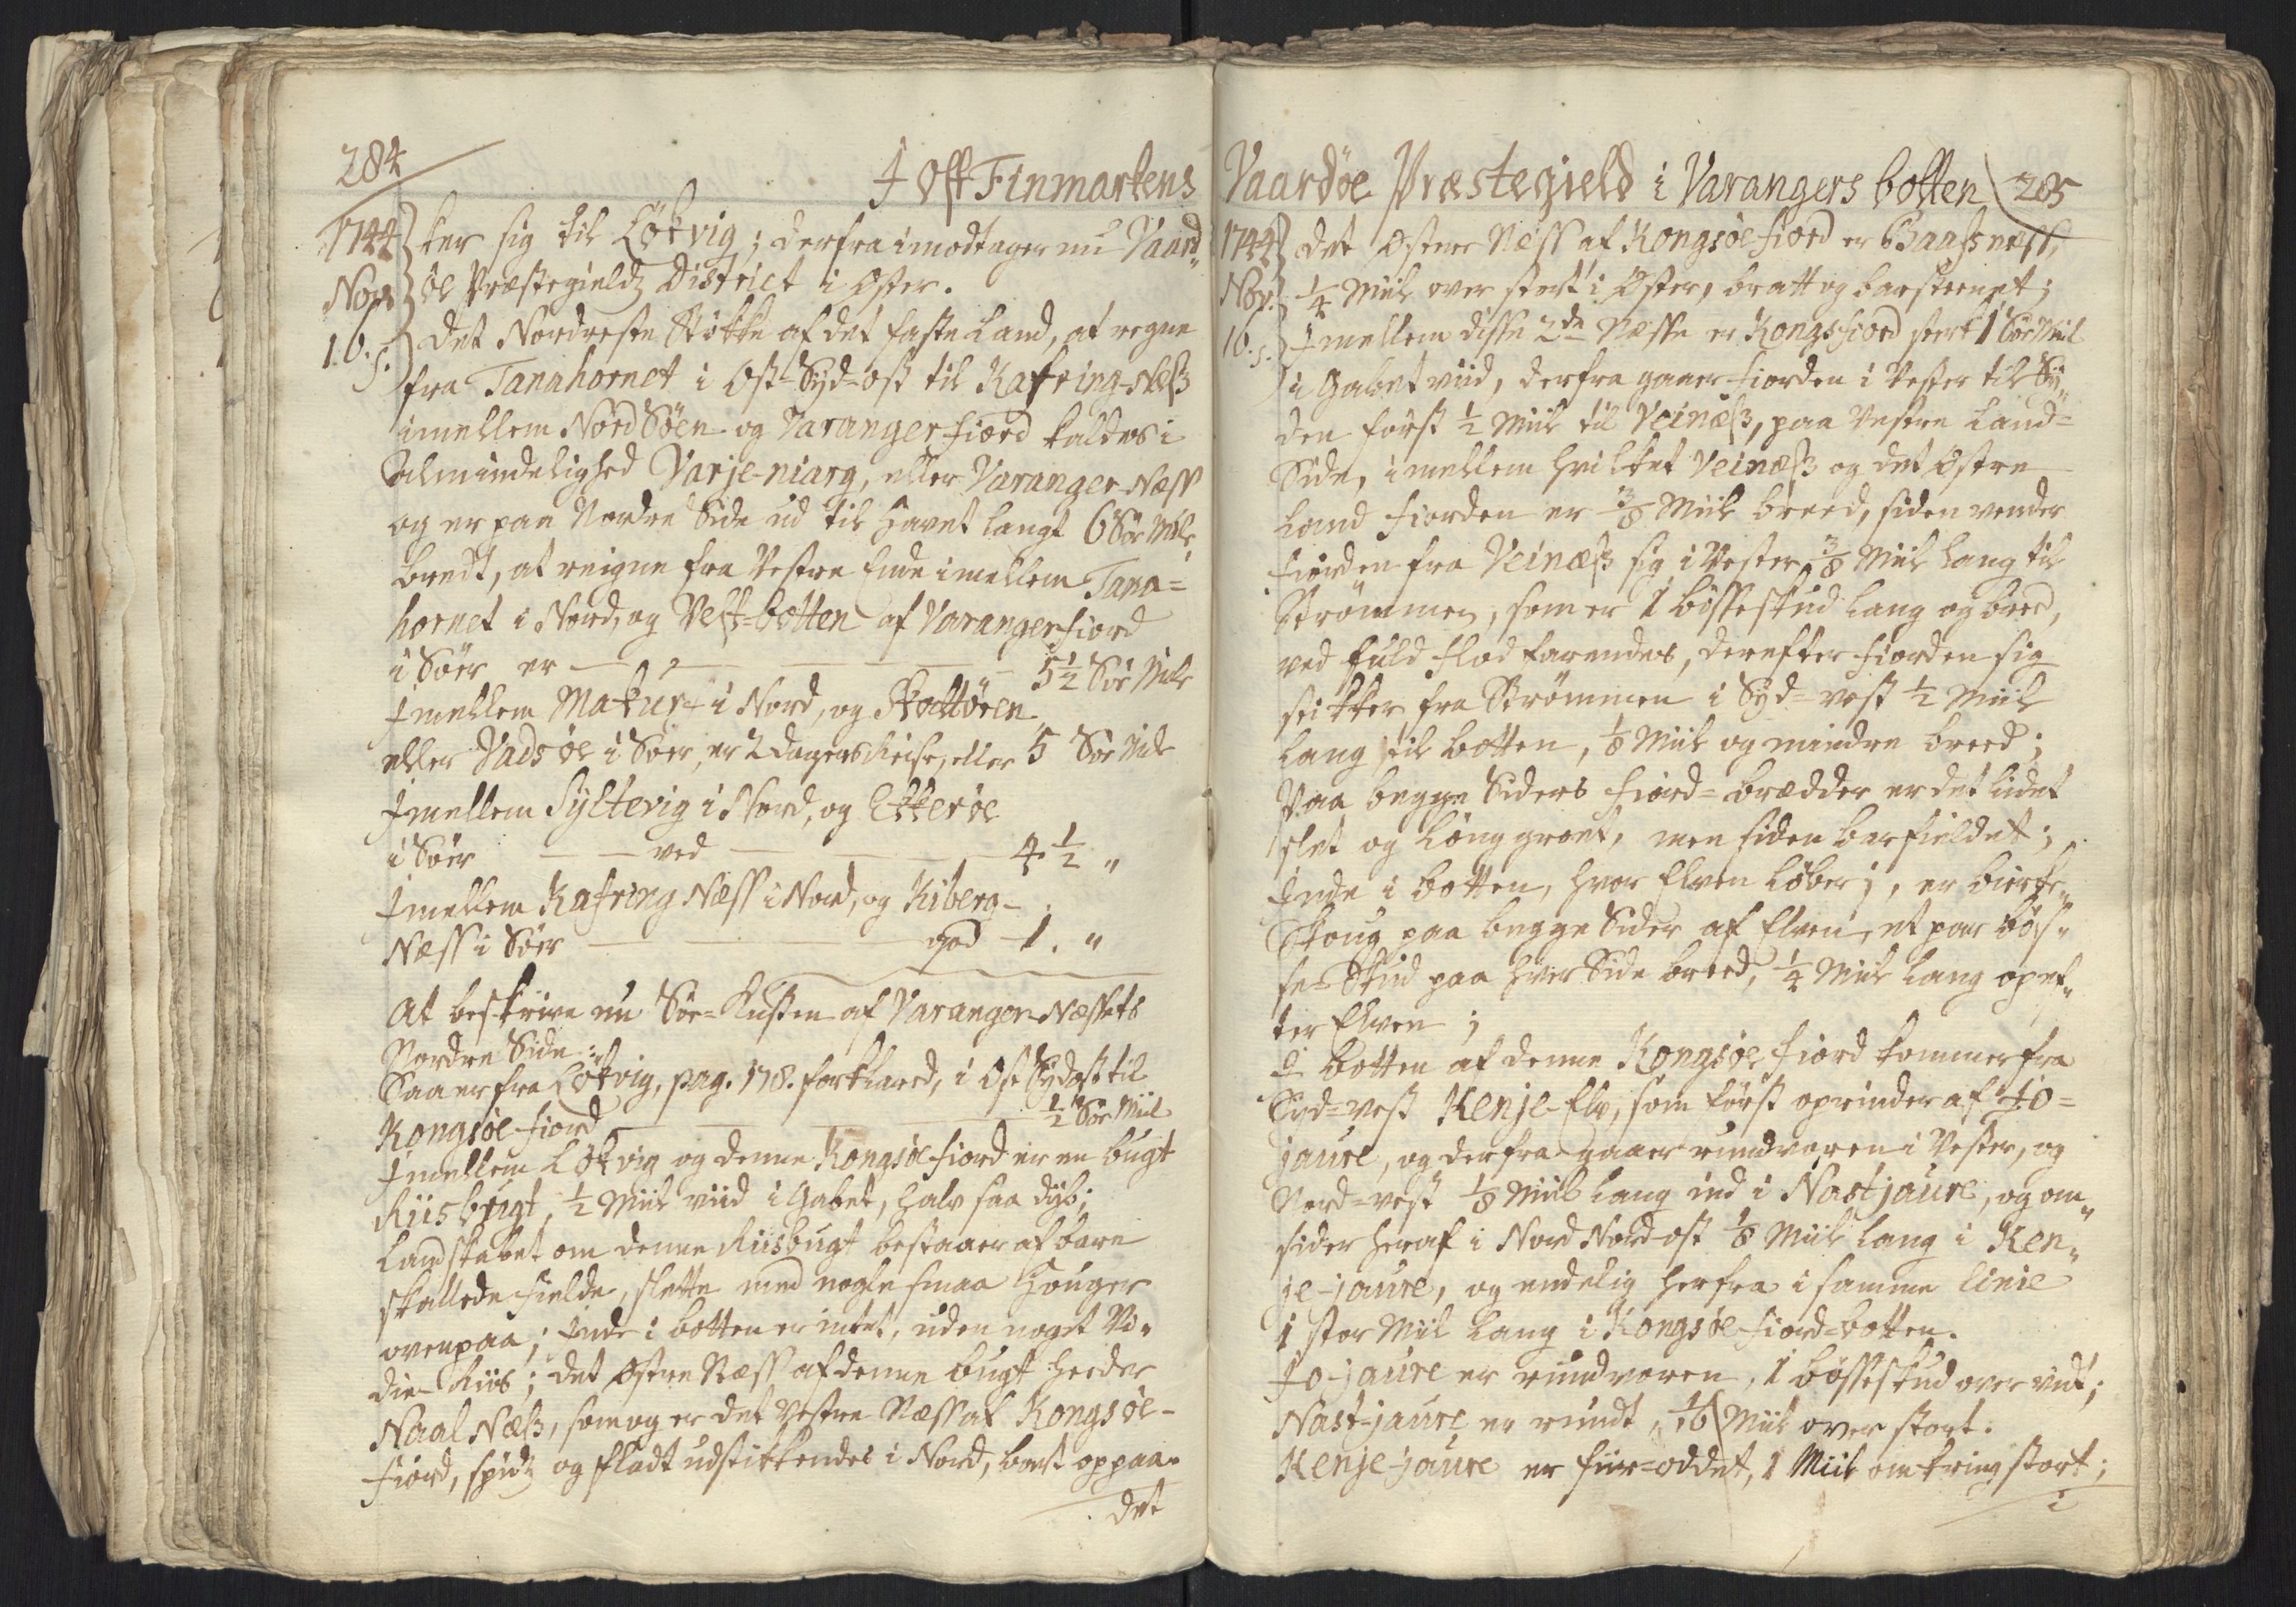 284
I Ost Finmarkens
1744 ker sig til Løkvig; derfra imodtager nu Vaard„
Nov. øe Præstegieldz District i Oster.
16. s. Det Nordreste Støkke af det faste Land, at regne
fra Tanahornet i Ost-Syd-ost til Kafring-Næss
imellem Nord Søen og Varangerfiord kaldes i
Almindelighed Varje-niarg, eller Varanger-Næss
og er paa Nordre Side ud til Havet langt 6 Søe Mile,
bredt, at reigne fra Vestre Ende imellem Tana=
hornet i Nord, og Vest-botten af Varangerfiord
i Søer er — — — 5½ Søe Mile
Imellem Makur i Nord, og Skattøren
eller Vadsøe i Søer, er 2 dagers Reise, eller 5 Søe Mile
Imellem Syltevig i Nord, og Ekkerøe
i Søer — — ved — — 4½ „
Imellem Kafring Næss i Nord, og Kiberg-
Næss i Søer — — — god — 1. „
At beskrive nu Søe-Kusten af Varanger-Næssets
Nordre Side:
Saa er fra Løkvig, pag. 178. forklared, i Ost Sydost til
Kongsøe-fiord — — — ½ Søe Miil
Imellem Løkvig og denne Kongsøefiord er en bugt
Riisbugt, ½ Miil viid i Gabet, halv saa dyb;
Landskabet om denne Riisbugt bestaaer af bare
skallede Fielde, slette med nogle smaa Houger
ovenpaa; Inde i botten er intet, uden noget Vi„
die-Riis; det Ostre Næss af denne bugt heeder
Naal Næss, som og er det Vestre Næss af Kongsøe-
fiord, spidz og fladt udstikkendes i Nord, bart oppaa.
det
Vaardøe Præstegield i Varangers botten 285
1744 Det Ostre Næss af Kongsøefiord er Baassness,
Nov. ¼ Miil over stort i Oster, bratt og barsteenet;
16. s. Imellem disse 2de Næsse er Kongsfiord sterk 1 Søe Miil
i Gabet viid, derfra gaaer Fiorden i Vester til Sy„
den først ½ Miil til Veinæss, paa Vestre Land=
Side, imellem hvilket Veinæss og det Ostre
Land Fiorden er ⅜ Miil breed, siden vender
Fiorden fra Veinæss sig i Vester ⅜ Miil lang til
Strømmen, som er 1 bøsseskud lang og breed,
ved fuld flod farendes, derefter Fiorden sig
stikker fra Strømmen i Syd-vest ½ Miil
lang til botten, ⅛ Miil og mindre breed;
Paa begge Siders Fiord-brædder er det lidet
slet og Lønggroet, men siden barfieldet;
Inde i botten, hvor Elven løber i, er birke„
Skoug paa begge Sider af Elven, et par bøs„
se-Skud paa hver Side breed, ¼ Miil lang opef„
ter Elven;
I botten af denne Kongsøefiord kommer fra
Syd-vest Kenje-Elv, som først oprinder af Jo=
jaure, og derfra gaaer rundvoren i Vester, og
Nord-vest ⅛ Miil lang ind i Nastjaure, og om„
sider heraf i Nord Nord-ost ⅛ Miil lang i Ken„
je-jaure, og endelig herfra i samme linie
1 stor Miil lang i Kongsøefiord-botten.
Jo-jaure er rundvoren, 1 bøsseskud over vid;
Nast-jaure er rundt, 1/16 Miil over stort.
Kenje-jaure er fiir-oddet, 1 Miil omkring stort;
i